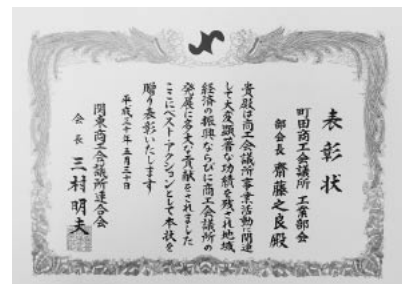 表彰状
町田商工会議所 工業部会
部会長 齋藤之良殿
貴殿は商工会議所事業活動に関連
して大変顕著な功績を残され地域
経済の振興ならびに商工会議所の
発展に多大な貢献をされました
ここにベスト・アクションとして本状を
贈り表彰いたします
平成三十年五月三十日
関東商工会議所連合会
会長 三村明夫